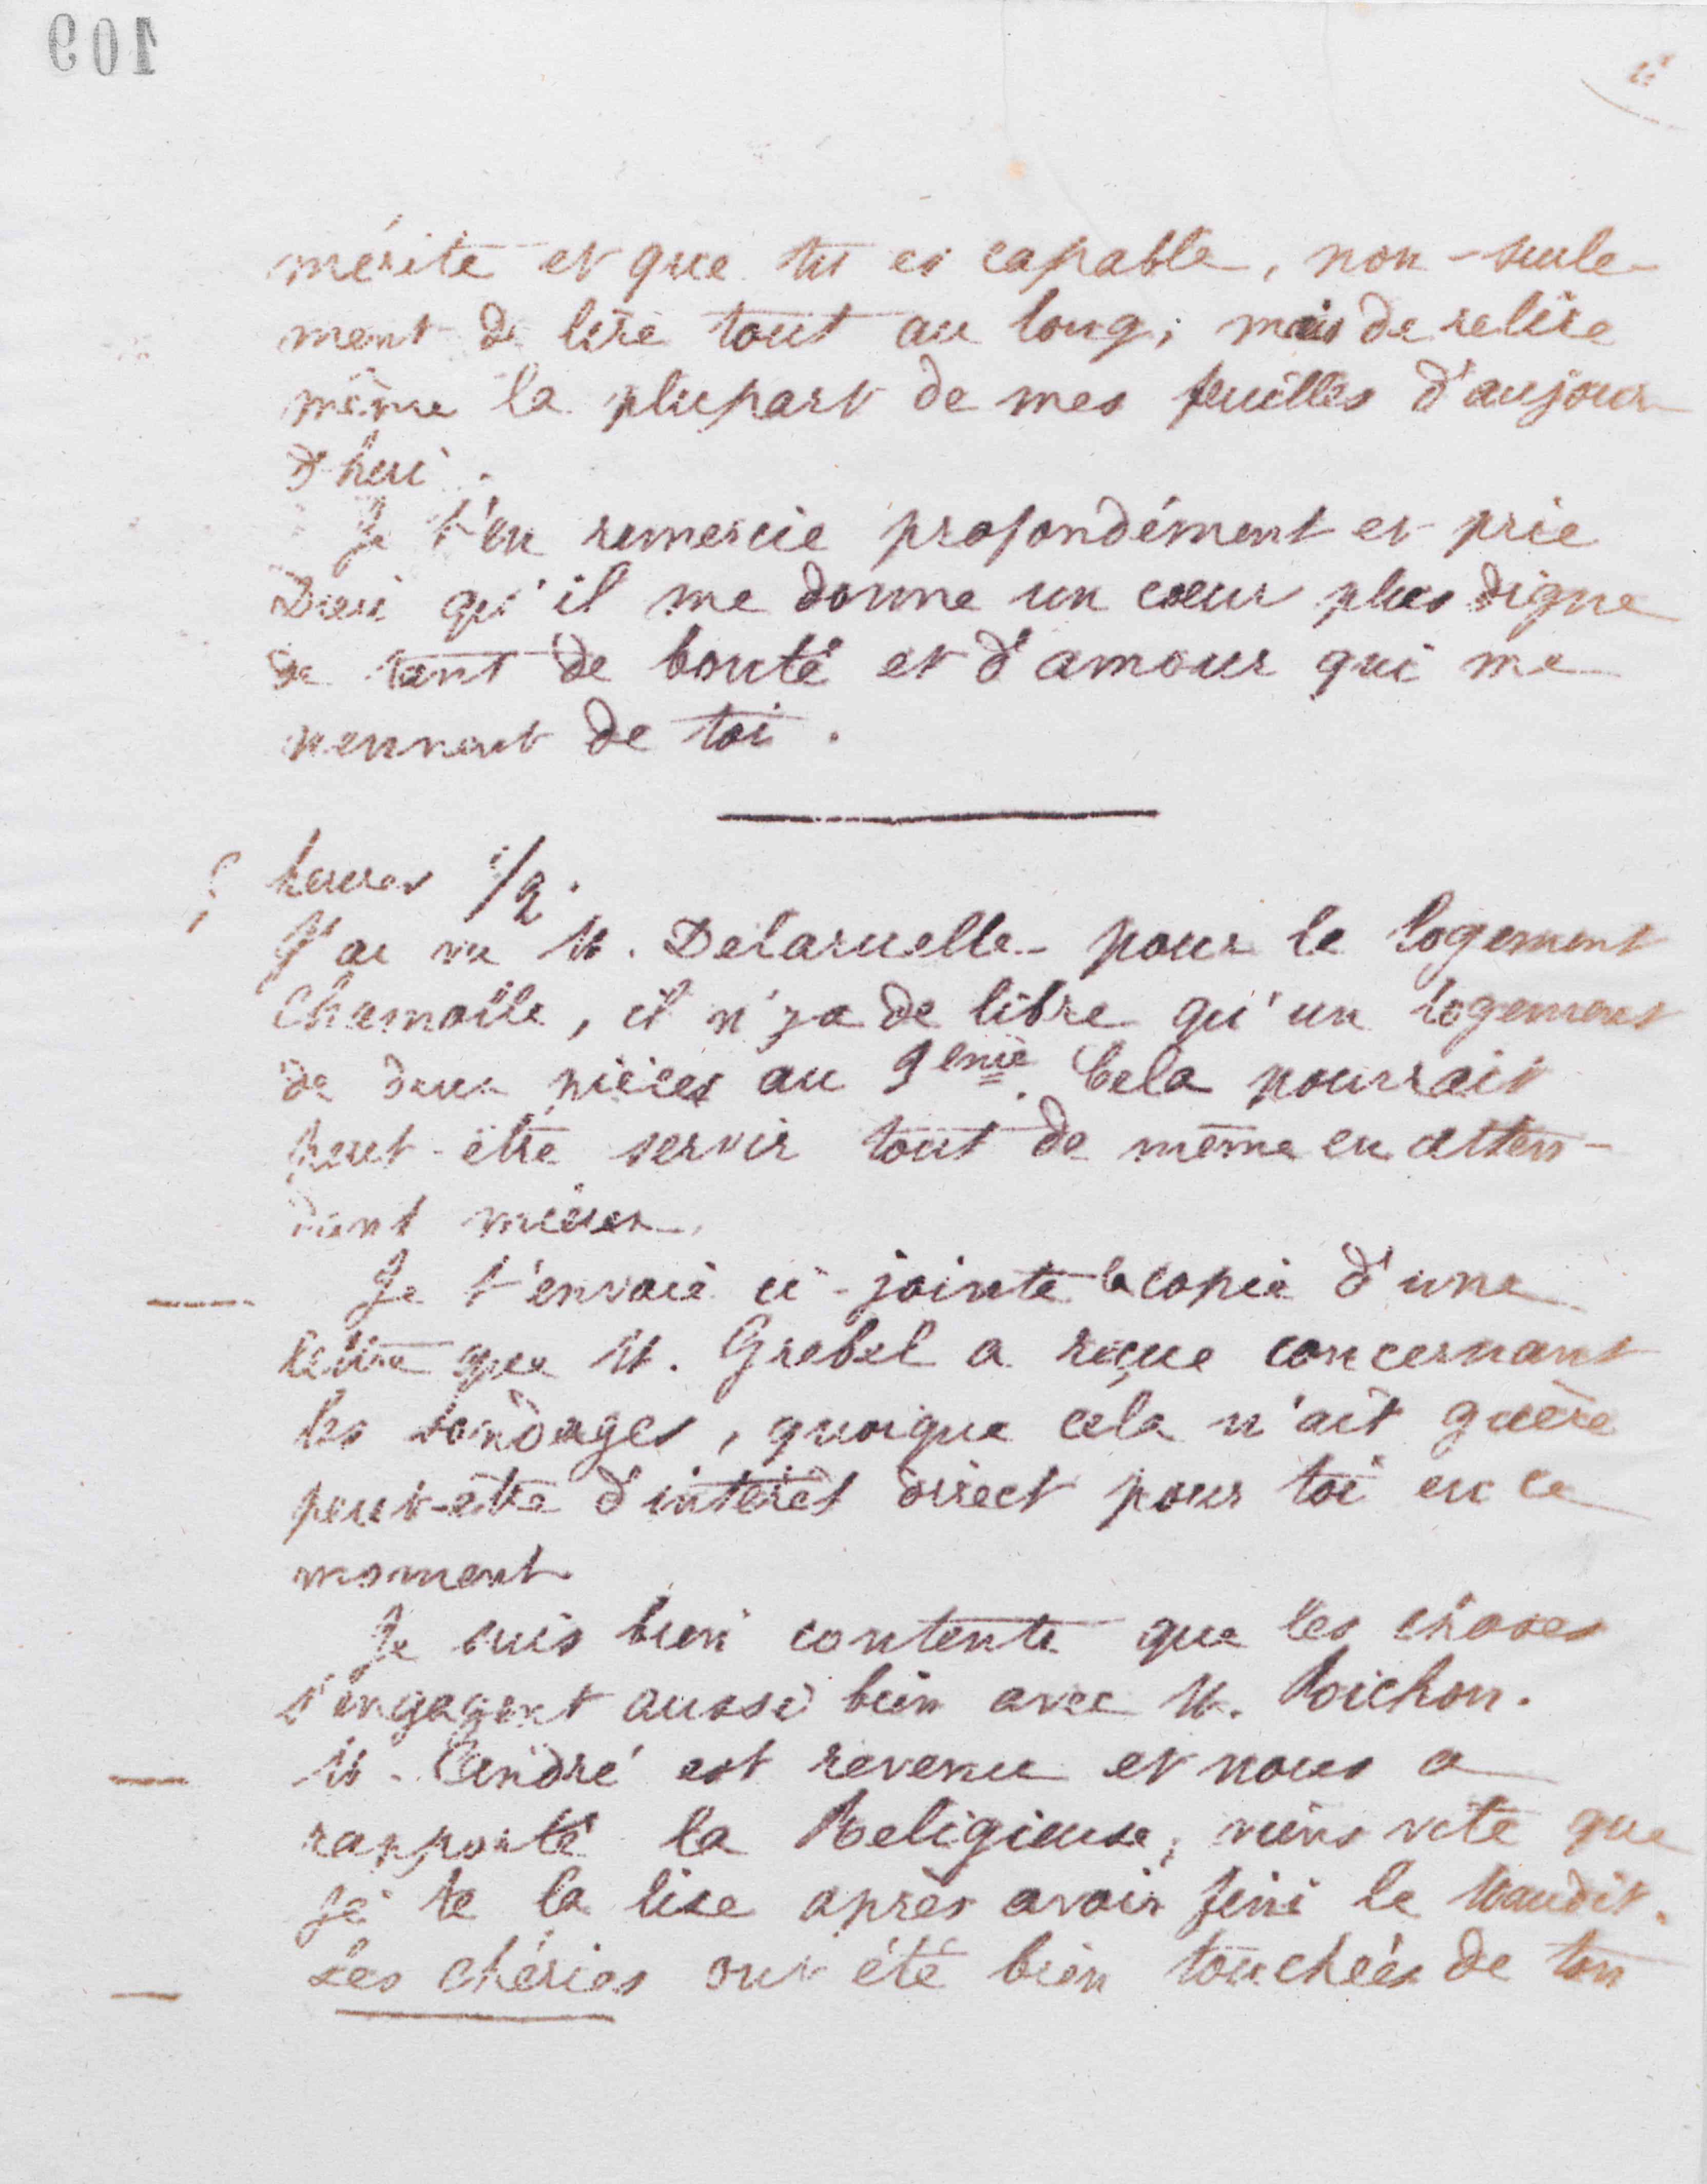 109
mérite et que tu es capable, non-seule-
ment de lire tout au long, mais de relire
même la plupart de mes feuilles d'aujour-
d'hui.
Je t'en remercie profondément et prie
Dieu qu'il me donne un cœur plus digne
de tant de bonté et d'amour qui me
viennent de toi.
heures 1/2.
J'ai vu M. Delaruelle pour le logement
il n'y a de libre qu'un logement
de deux pièces au Cela pourrait
peut-être servir tout de même en atten-
dant mieux.
Je t'envoie ci-jointe la copie d'une
lettre que M. Grebel a reçue concernant
les sondages, quoique cela n'ait guère
peut-être d'intérêt direct pour toi en ce
moment
Je suis bien contente que les choses
s'engagent aussi bien avec M.
M. André est revenu et nous a
rapporté la Religieuse, viens vite que
je te la lise après avoir fini le Maudit.
Les chéries ont été bien touchées de ton